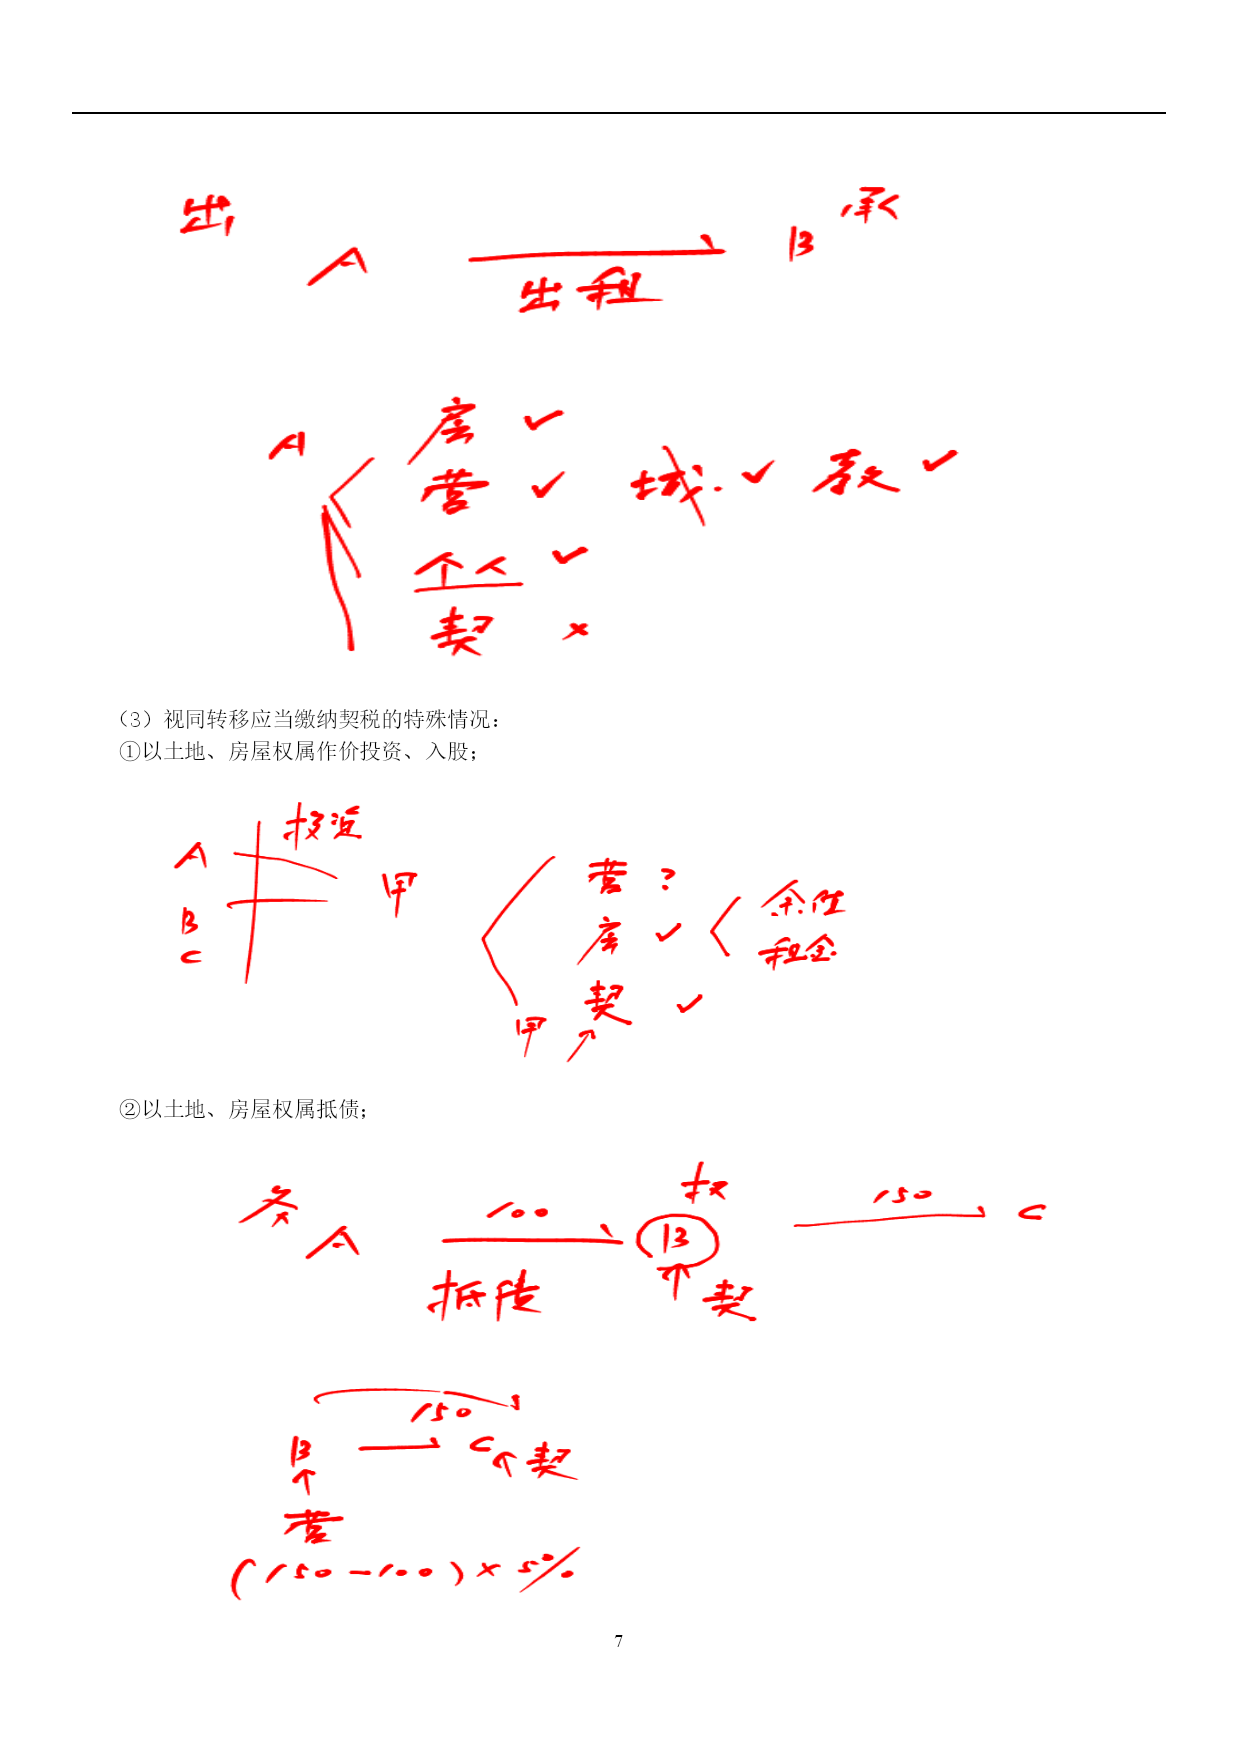 出 承
A B
出租
房 ✓
A
营 ✓ 城. ✓ 教 ✓
个人 ✓
契 ×
（3）视同转移应当缴纳契税的特殊情况：
①以土地、房屋权属作价投资、入股；
投资
A 甲
B
C
营 ?
房 ✓ 余值
租金
契 ✓
甲
②以土地、房屋权属抵债；
务 100 权 150
A B C
抵债 契
150
B C 契
营
(150-100)×5%
7